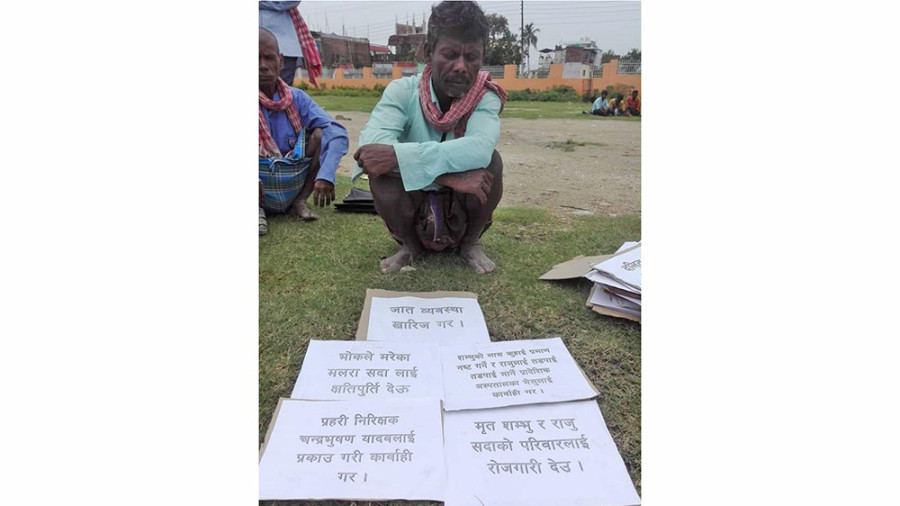 जात व्यवस्था
खारिज गर ।
भोकले मरेका
मलरा सदा लाई
क्षतिपुर्ति देऊ
शम्भुको लास जुठाई प्रमाण
नष्ट गर्ने र राजुलाई तडपाई
तडपाई मार्ने प्रादेशिक
अस्पतालका मेसुलाई
कार्बाही गर ।
प्रहरी निरिक्षक
चन्द्रभुषण यादबलाई
प्रकाउ गरी कार्बाही
गर ।
मृत शम्भु र राजु
सदाको परिबारलाई
रोजगारी देउ ।